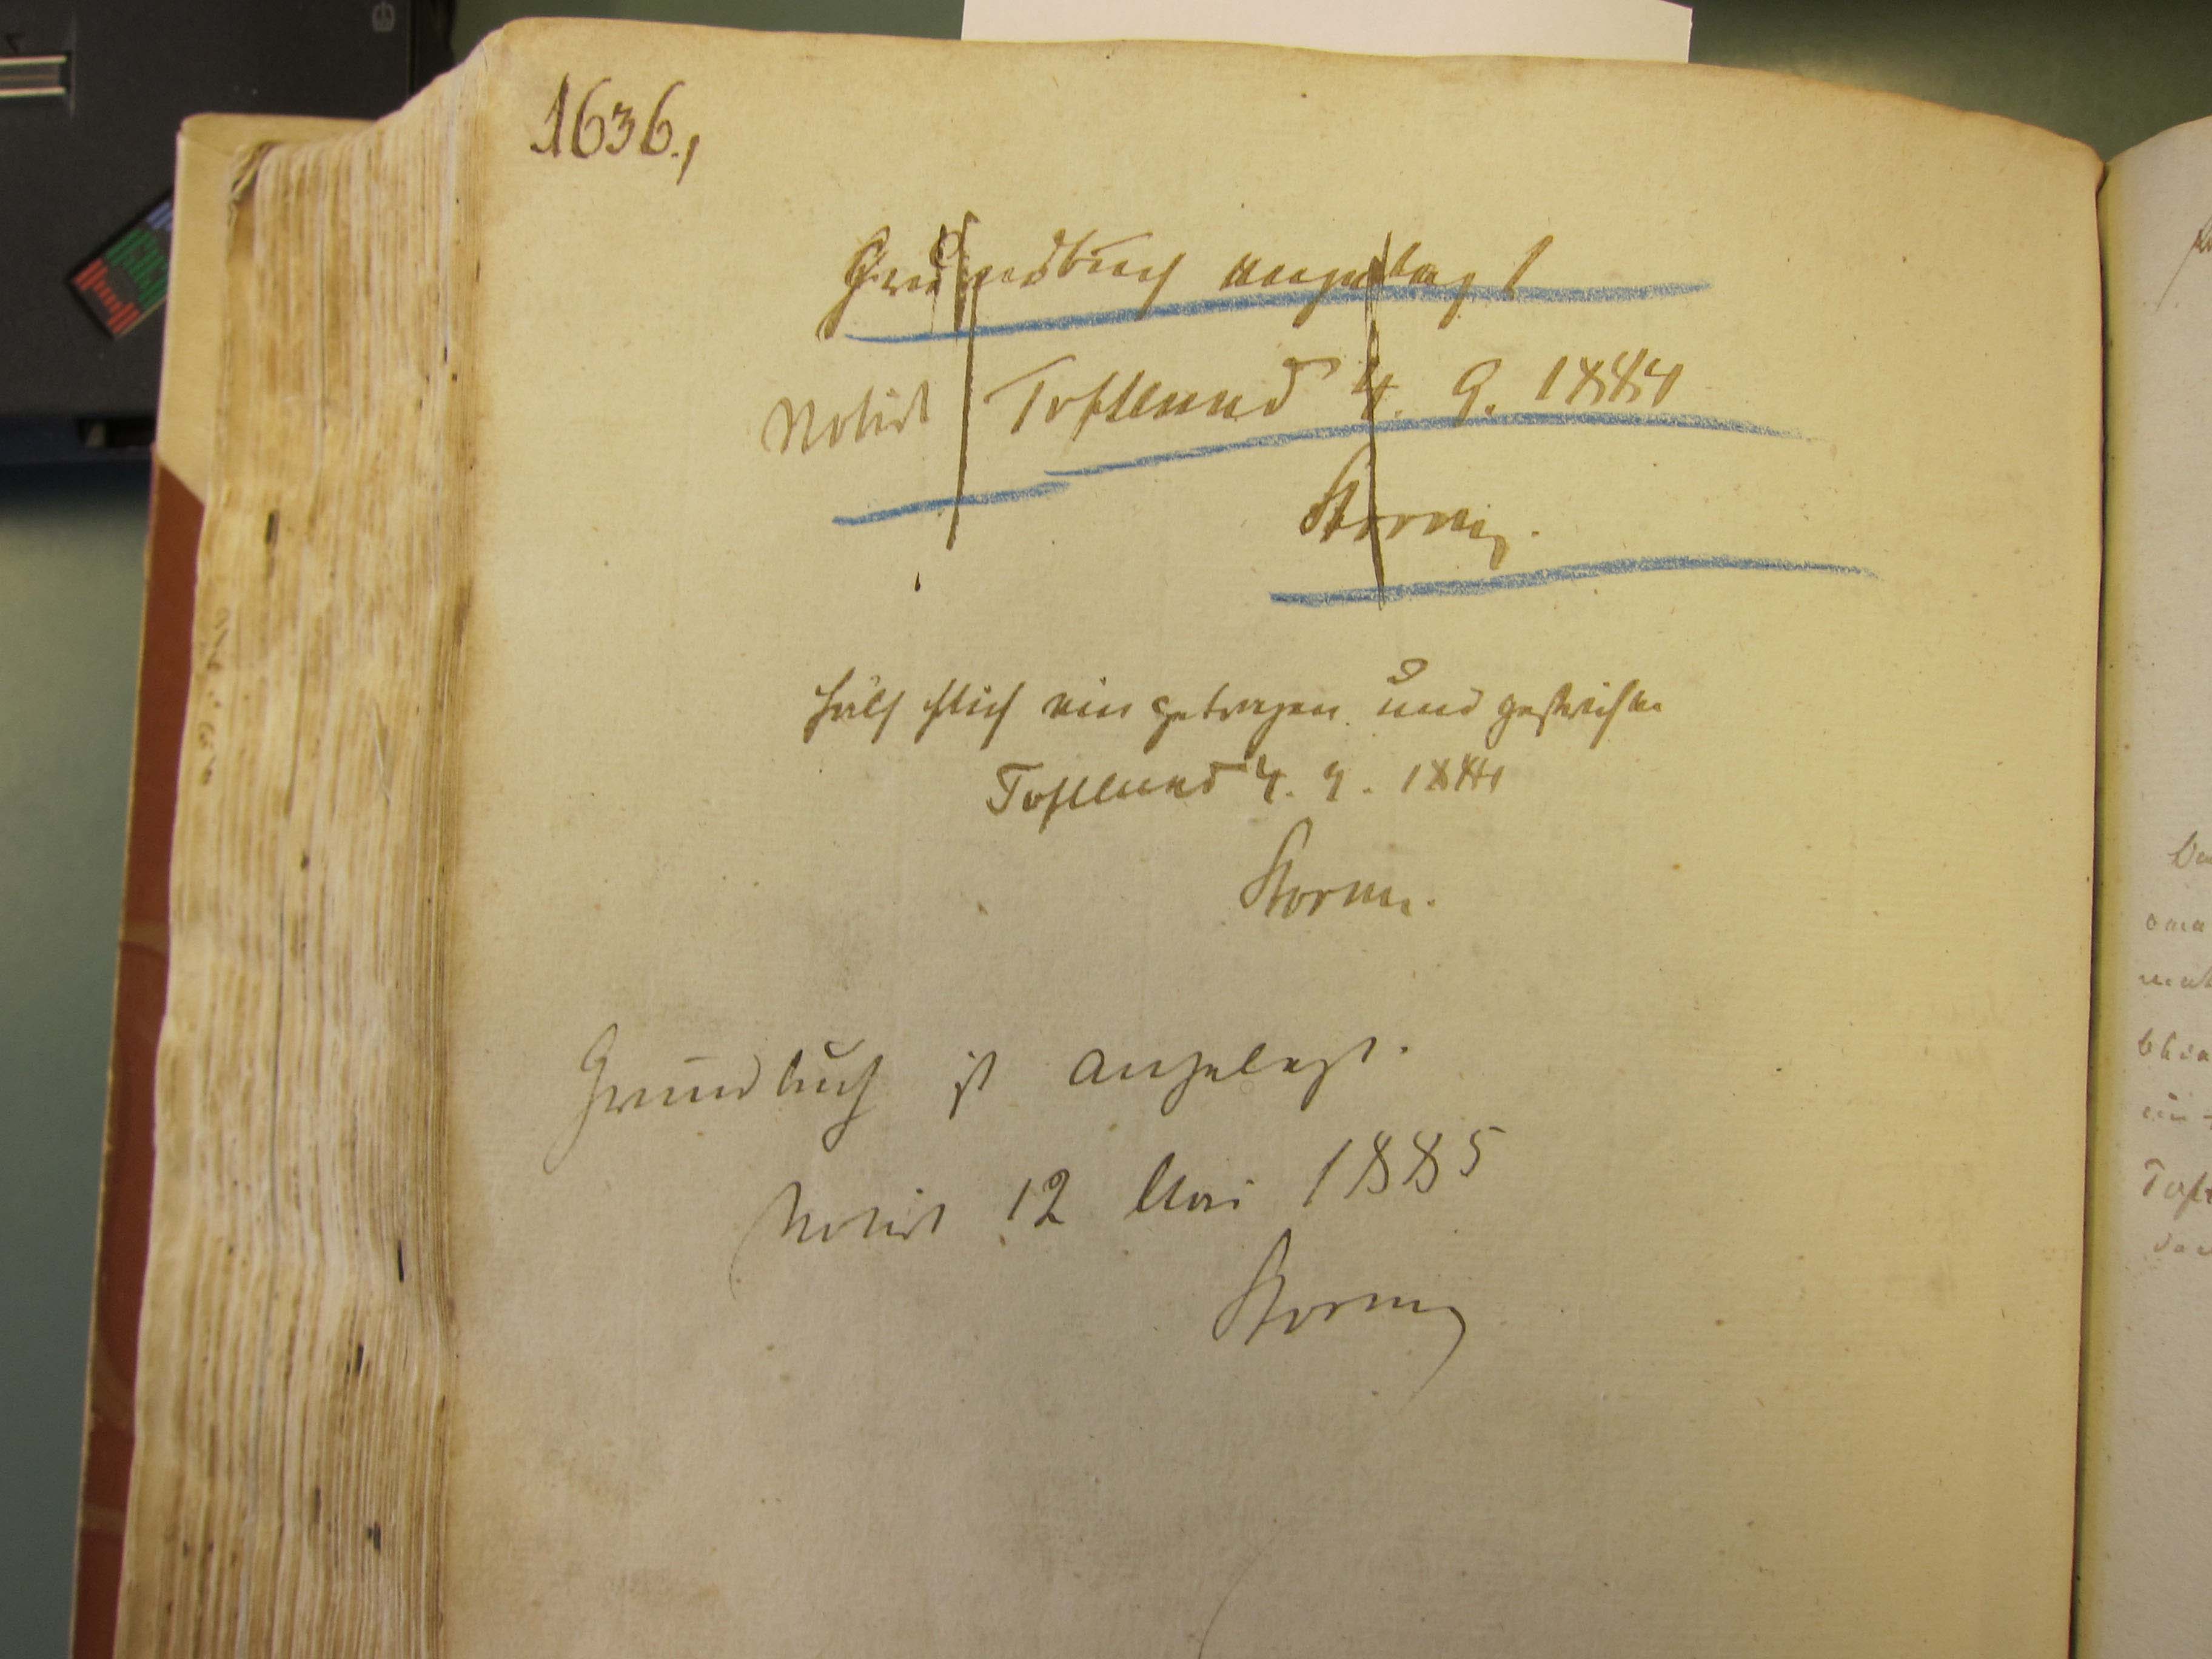 1636.,
Grundbuch angelegt
Notirt Toftlund 4. 9. 1884
Storm.
fälschlich eingetragen und gestrichen
Toftlund 4. 9. 1884
Storm.
Grundbuch ist angelegt.
Notirt 12 Mai 1885
Storm